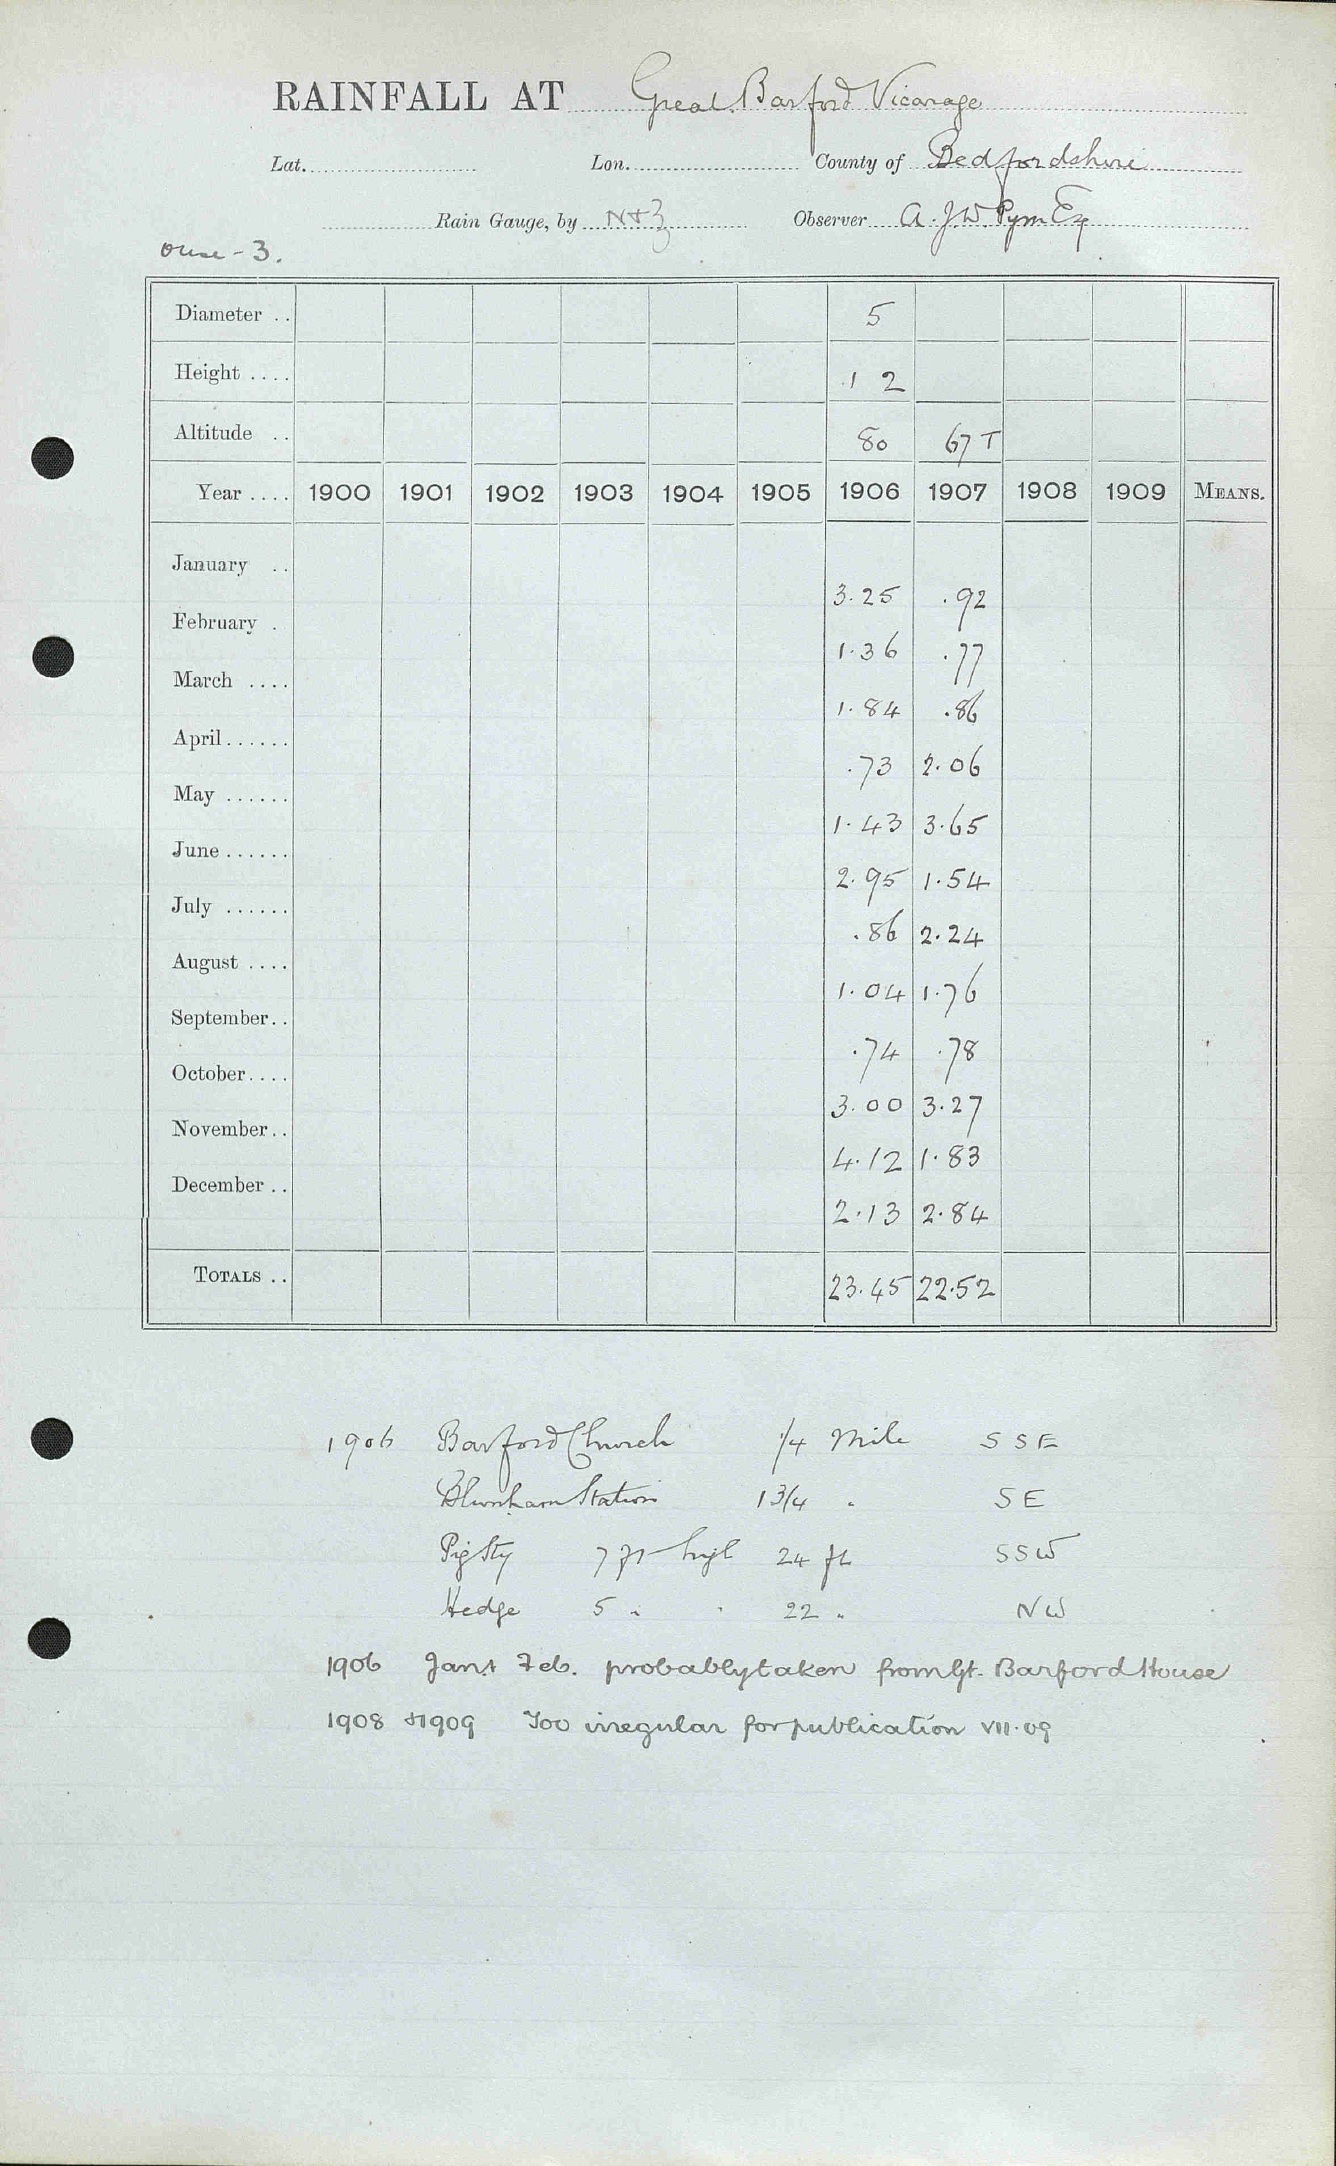 RAINFALL AT Great Barford Vicarage
Lat. Lon. County of Bedfordshire
Rain Gauge, by N & Z Observer A. J. W. Pym Esq
Ouse - 3.
Diameter .. 5
Height .... 1 2
Altitude .. 80 67 T
Year .... 1900 1901 1902 1903 1904 1905 1906 1907 1908 1909 MEANS.
January .. 3.25 .92
February . 1.36 .77
March .... 1.84 .86
April ...... .73 2.06
May ...... 1.43 3.65
June ...... 2.95 1.54
July ...... .86 2.24
August .... 1.04 1.76
September .. .74 .78
October .... 3.00 3.27
November .. 4.12 1.83
December .. 2.13 2.84
TOTALS .. 23.45 22.52
1906 Barford Church 1/4 Mile S S E
Blunham Station 1 3/4 " S E
Pig Sty 7 ft high 24 ft S S W
Hedge 5 " " 22 " N W
1906 Jan & Feb. probably taken from Gt. Barford House
1908 & 1909 Too irregular for publication VII.09